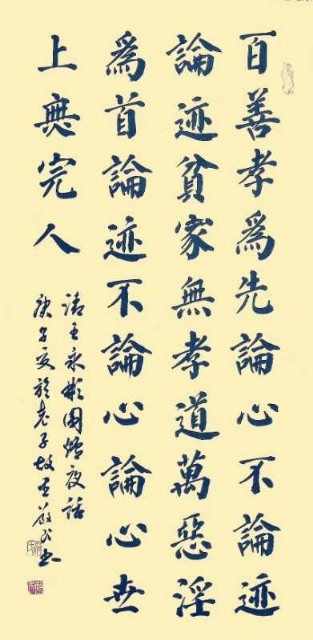 百善孝為先論心不論迹
論迹貧家無孝道萬惡淫
為首論迹不論心論心世
上無完人
清王永彬圍爐夜話
庚子夏於老子故里